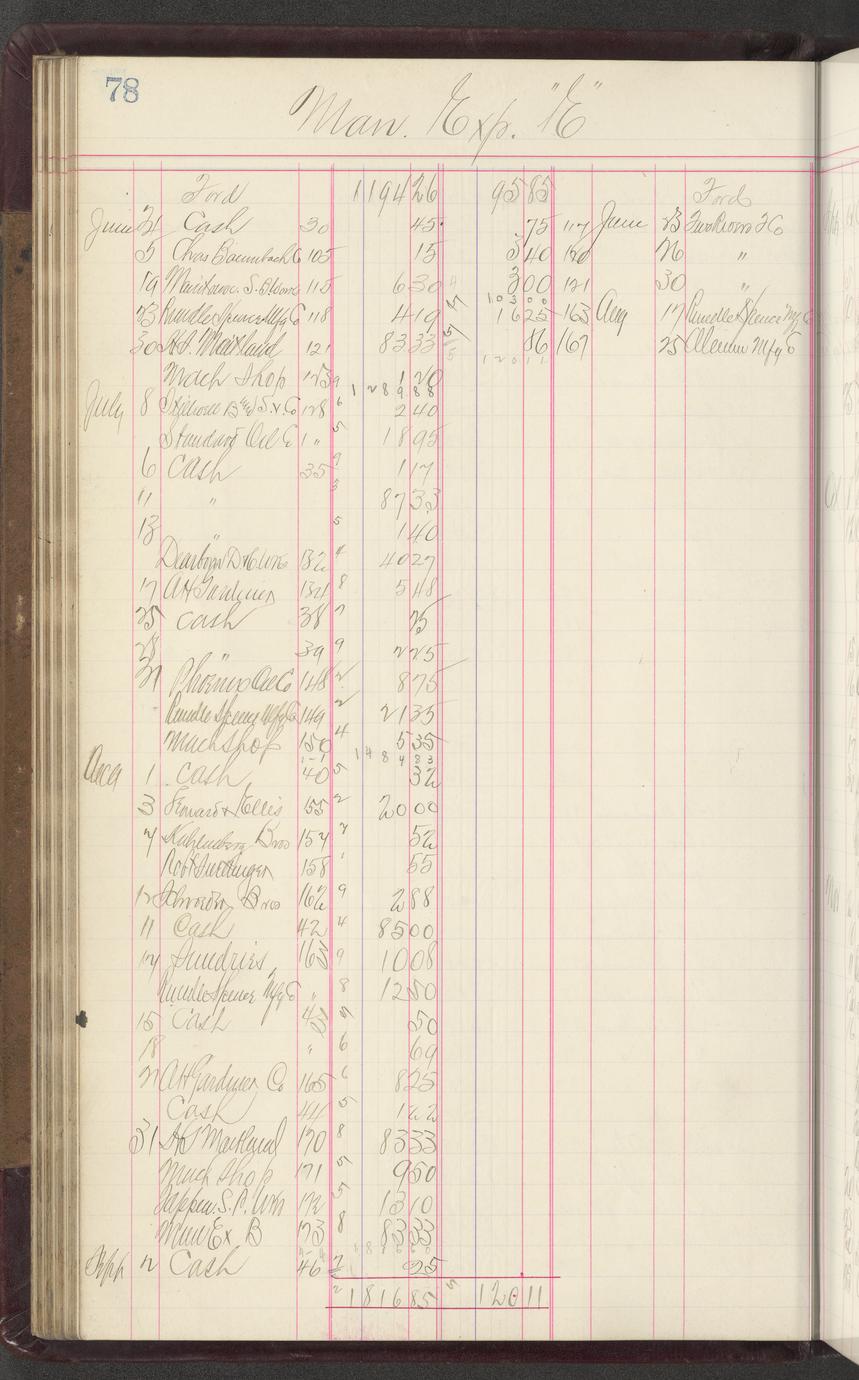 78
Man. Exp. "E"
Ford 1194 26 95 85 Ford
June 21 Cash 30 45 75 117 June 23 Two Rivers
5 Chas Baumbach Co 105 15 5 40 120 26 "
19 Manitowoc S. B. 115 6 30 3 00 121 30 "
103 00
23 Rundle Spence Mfg Co 118 4 19 16 25 163 Aug 17 Rundle Spence Mfg Co
30 H. P. Maitland 121 83 33 86 167 25 Mfg Co
120 11
Mach Shop 123 1 20
1289 88
July 8 Stillwell 128 2 40
Standard Oil Co " 18 95
6 Cash 35 1 17
11 " 87 33
13 1 40
Dearborn D & C Wks 132 40 27
17 A H Gardiner 134 5 48
25 Cash 38 25
28 " 39 2 25
31 Phoenix Oil Co 148 8 75
Rundle Spence Mfg Co 149 21 35
Mach Shop 150 5 35
1484 83
Aug 1 Cash 40 32
3 & Ellis 155 20 00
7 Kahlenberg Bros 157 52
158 55
12 Schroeder Bros 162 2 88
11 Cash 42 85 00
17 Sundries 163 10 08
Rundle Spence Mfg Co " 12 50
15 Cash 43 50
18 " 69
21 A H Gardiner Co 165 8 25
Cash 44 1 22
31 H P Maitland 170 83 33
Mach Shop 171 9 50
S. P. Wm 172 13 10
Man Ex B 173 83 33
Sept 2 Cash 46 25
1816 85 120 11